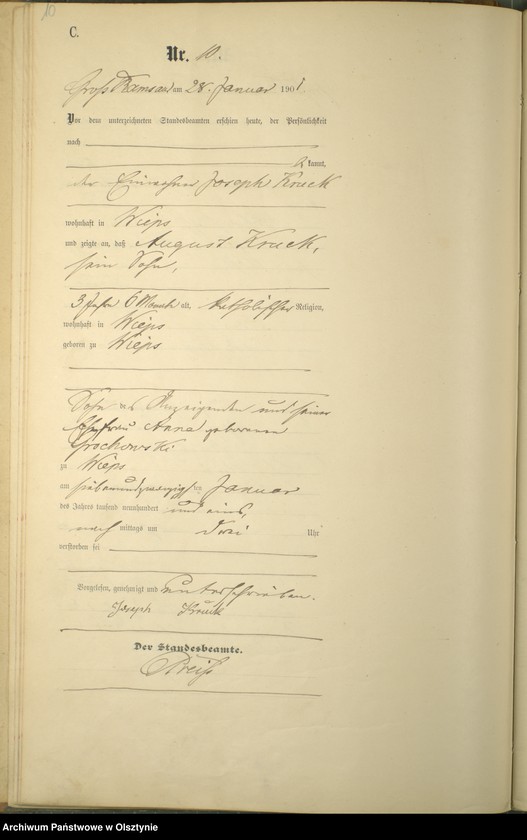 10
C.
Nr. 10.
Groß Ramsau am 28. Januar 1901.
Vor dem unterzeichneten Standesbeamten erschien heute, der Persönlichkeit
nach
kannt,
der Einwohner Joseph Kruck
wohnhaft in Wieps
und zeigte an, daß August Kruck,
sein Sohn,
3 Jahre 6 Monate alt, katholischer Religion,
wohnhaft in Wieps
geboren zu Wieps
Sohn des Anzeigenden und seiner
Ehefrau Anna geborenen
Grochowski
zu Wieps
am siebenundzwanzigsten Januar
des Jahres tausend neunhundert und eins,
nach mittags um drei Uhr
verstorben sei
Vorgelesen, genehmigt und unterschrieben.
Joseph Kruck
Der Standesbeamte.
Archiwum Państwowe w Olsztynie